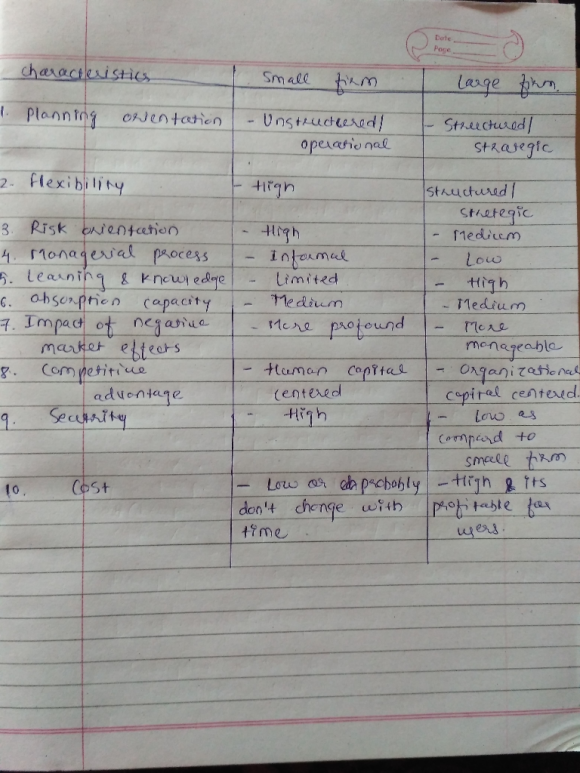 Date
Page
characteristics Small firm Large firm.
1. Planning orientation - Unstructured/ - Structured/
operational strategic
2. flexibility - High structured/
stretegic
3. Risk orientation - High - Medium
4. Managerial process - Informal - Low
5. Learning & knowledge - Limited - High
6. absorption capacity - Medium - Medium
7. Impact of negative - More profound - More
market effects manageable
8. Competitive - Human capital - Organizational
advantage centered capital centered.
9. Security - High - Low as
compard to
small firm
10. Cost - Low or probably - High & its
don't change with profitable for
time. users.